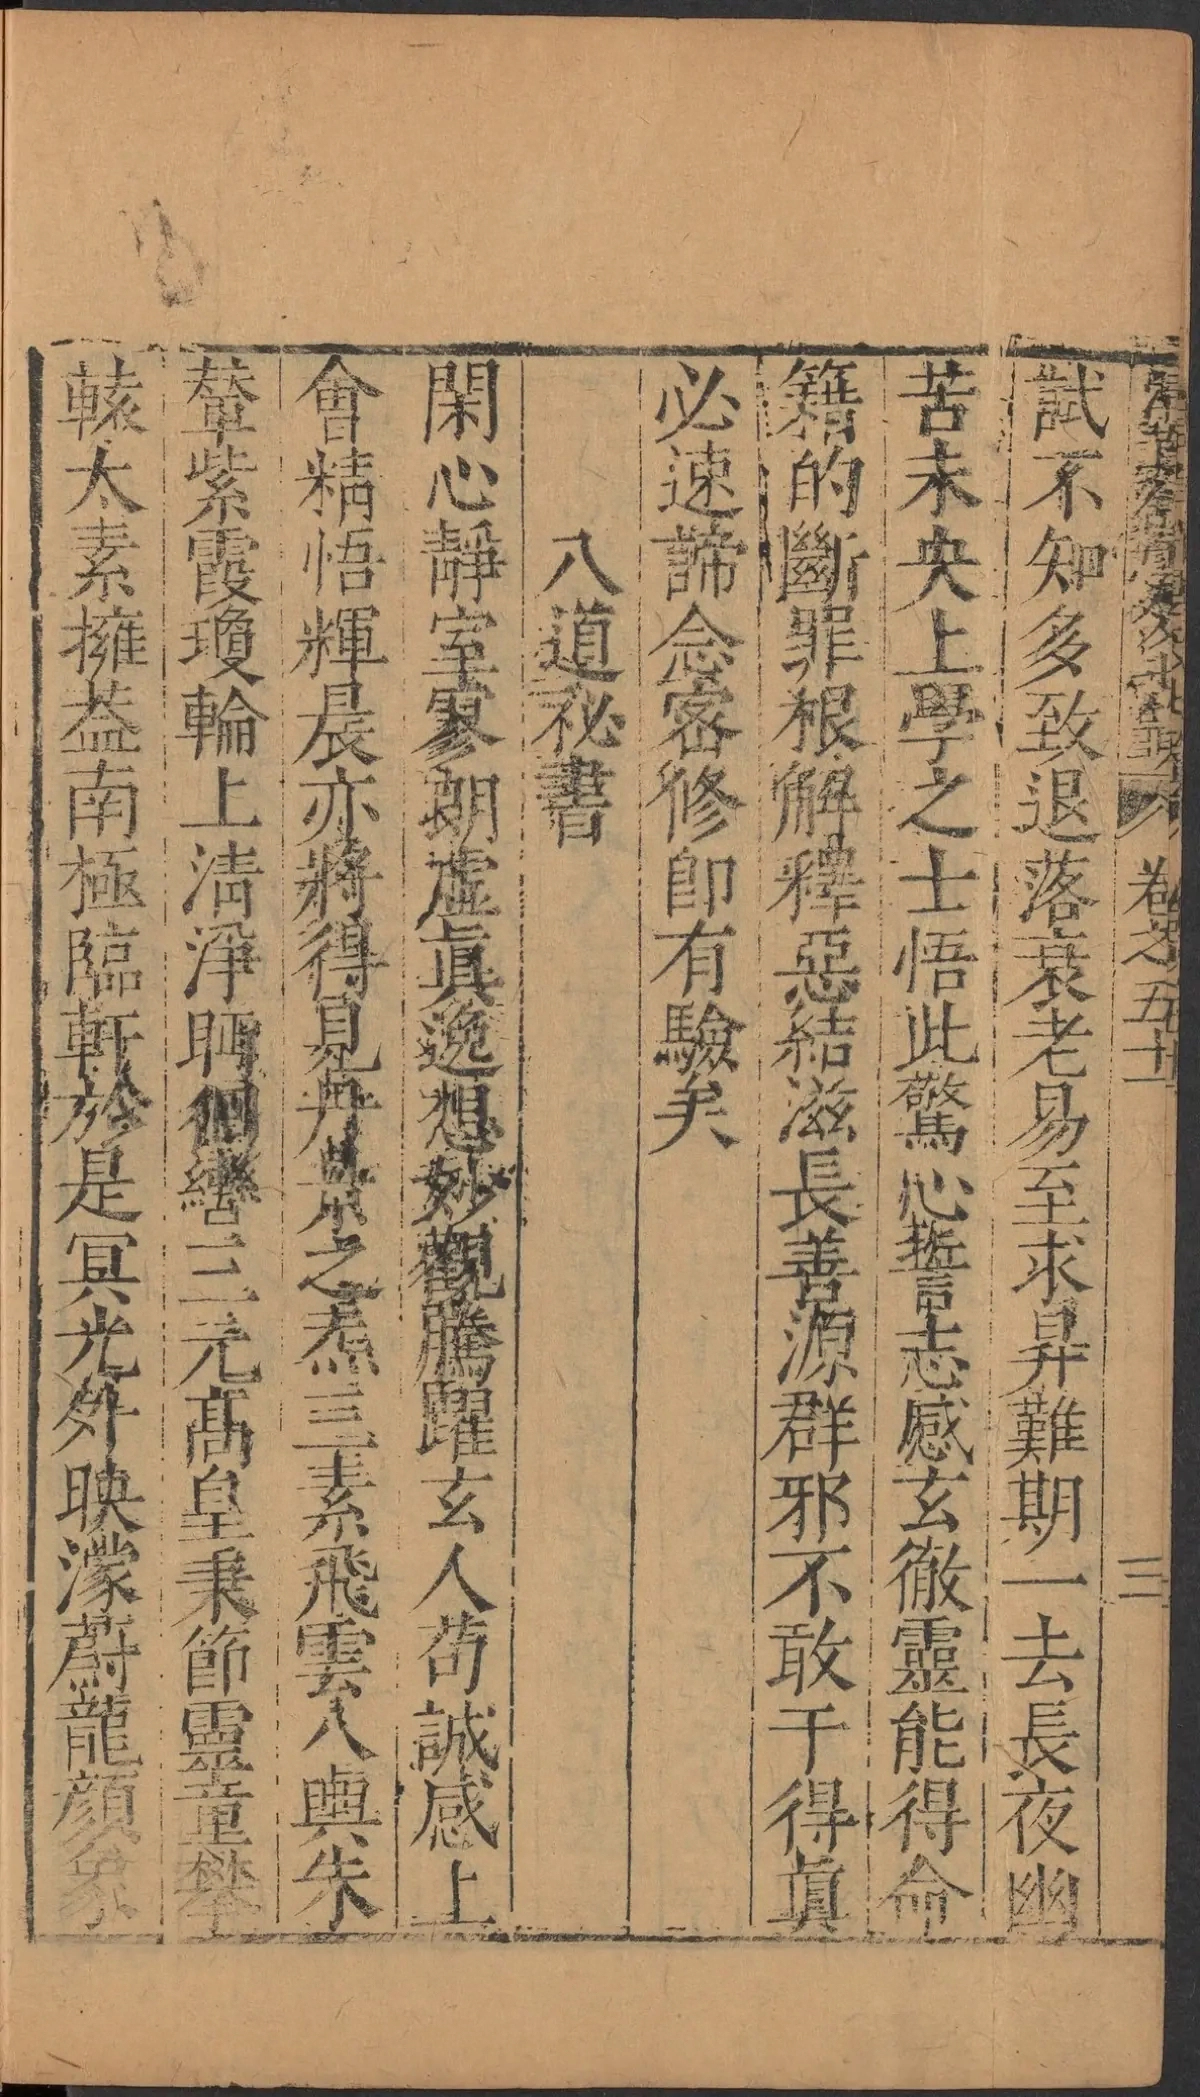 卷之五十一 三
試不知多致退落衰老易至求昇難期一去長夜幽
苦未央上學之士悟此驚心誓志感玄徹靈能得命
籍的斷罪根解釋惡結滋長善源群邪不敢干得眞
必速諦念密修卽有驗矣
八道祕書
閑心靜室寥朗虛眞逸想妙觀騰躍玄人苟誠感上
會精悟輝晨亦將得見丹景之焏三素飛雲八輿朱
輦紫霞瓊輪上淸淨眄徊鸞三元髙皇秉節靈童攀
轅太素擁葢南極臨軒於是冥光外映濛蔚龍顔象